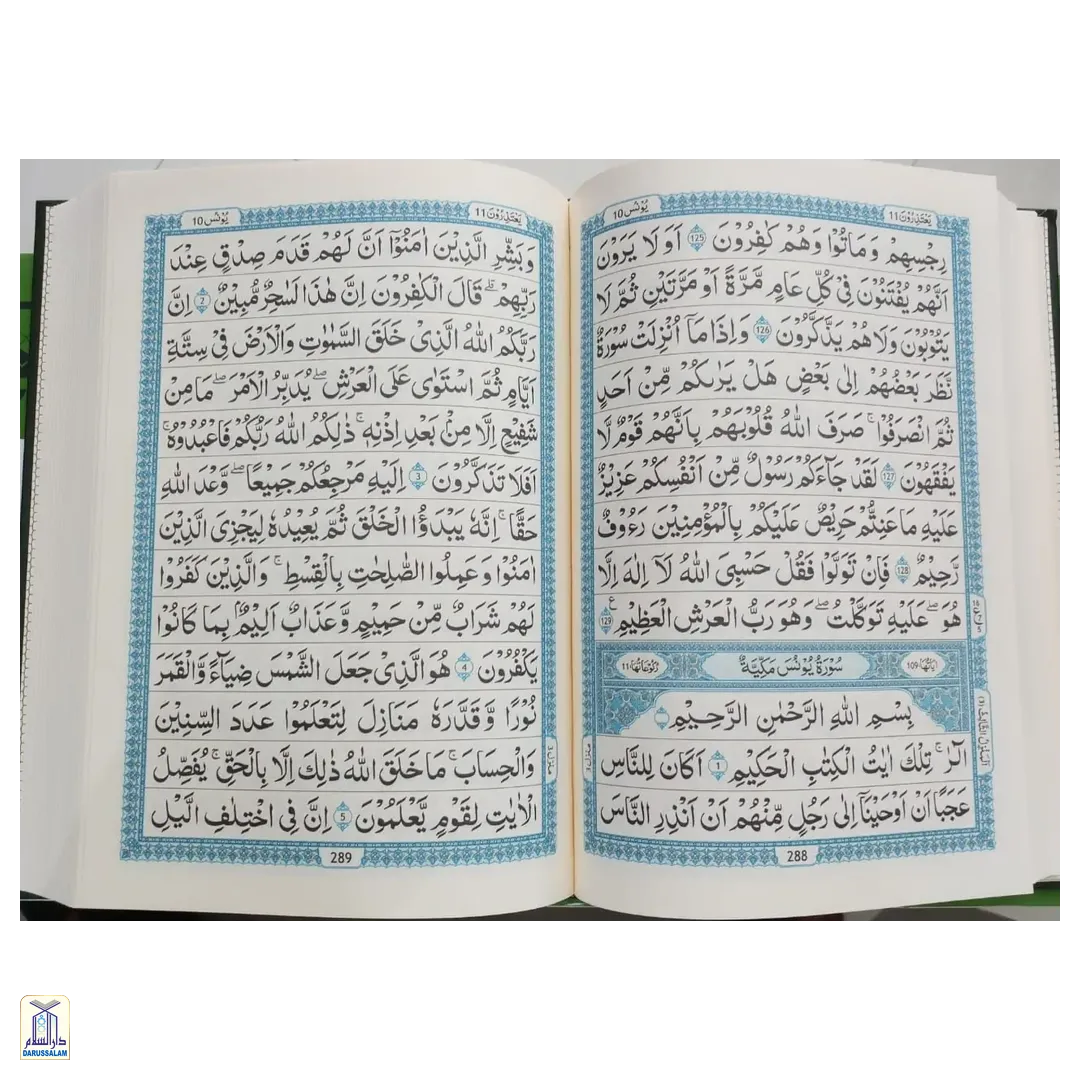 يَعْتَذِرُوْنَ 11
يُوْنُس 10
رِجْسِهِمْ وَمَاتُوْا وَهُمْ كٰفِرُوْنَ 125 اَوَلَا يَرَوْنَ
اَنَّهُمْ يُفْتَنُوْنَ فِيْ كُلِّ عَامٍ مَّرَّةً اَوْ مَرَّتَيْنِ ثُمَّ لَا
يَتُوْبُوْنَ وَلَاهُمْ يَذَّكَّرُوْنَ 126 وَاِذَا مَاۤ اُنْزِلَتْ سُوْرَةٌ
نَّظَرَ بَعْضُهُمْ اِلٰى بَعْضٍ هَلْ يَرٰىكُمْ مِّنْ اَحَدٍ
ثُمَّ انْصَرَفُوْا ۚ صَرَفَ اللّٰهُ قُلُوْبَهُمْ بِاَنَّهُمْ قَوْمٌ لَّا
يَفْقَهُوْنَ 127 لَقَدْ جَآءَكُمْ رَسُوْلٌ مِّنْ اَنْفُسِكُمْ عَزِيْزٌ
عَلَيْهِ مَا عَنِتُّمْ حَرِيْصٌ عَلَيْكُمْ بِالْمُؤْمِنِيْنَ رَءُوْفٌ
رَّحِيْمٌ 128 فَاِنْ تَوَلَّوْا فَقُلْ حَسْبِيَ اللّٰهُ لَاۤ اِلٰهَ اِلَّا
هُوَ ۖ عَلَيْهِ تَوَكَّلْتُ ۖ وَهُوَ رَبُّ الْعَرْشِ الْعَظِيْمِ 129
اٰيَاتُهَا 109 سُوْرَةُ يُوْنُسَ مَكِّيَّةٌ رُكُوْعَاتُهَا 11
بِسْمِ اللّٰهِ الرَّحْمٰنِ الرَّحِيْمِ
الٓرٰ ۚ تِلْكَ اٰيٰتُ الْكِتٰبِ الْحَكِيْمِ 1 اَكَانَ لِلنَّاسِ
عَجَبًا اَنْ اَوْحَيْنَاۤ اِلٰى رَجُلٍ مِّنْهُمْ اَنْ اَنْذِرِ النَّاسَ
288
يَعْتَذِرُوْنَ 11
يُوْنُس 10
وَبَشِّرِ الَّذِيْنَ اٰمَنُوْۤا اَنَّ لَهُمْ قَدَمَ صِدْقٍ عِنْدَ
رَبِّهِمْ ۗ قَالَ الْكٰفِرُوْنَ اِنَّ هٰذَا لَسٰحِرٌ مُّبِيْنٌ 2 اِنَّ
رَبَّكُمُ اللّٰهُ الَّذِيْ خَلَقَ السَّمٰوٰتِ وَالْاَرْضَ فِيْ سِتَّةِ
اَيَّامٍ ثُمَّ اسْتَوٰى عَلَى الْعَرْشِ ۖ يُدَبِّرُ الْاَمْرَ ۖ مَا مِنْ
شَفِيْعٍ اِلَّا مِنْۢ بَعْدِ اِذْنِهٖ ۚ ذٰلِكُمُ اللّٰهُ رَبُّكُمْ فَاعْبُدُوْهُ ۚ
اَفَلَا تَذَكَّرُوْنَ 3 اِلَيْهِ مَرْجِعُكُمْ جَمِيْعًا ۖ وَّعْدَ اللّٰهِ
حَقًّا ۚ اِنَّهٗ يَبْدَؤُا الْخَلْقَ ثُمَّ يُعِيْدُهٗ لِيَجْزِيَ الَّذِيْنَ
اٰمَنُوْا وَعَمِلُوا الصّٰلِحٰتِ بِالْقِسْطِ ۚ وَالَّذِيْنَ كَفَرُوْا
لَهُمْ شَرَابٌ مِّنْ حَمِيْمٍ وَّعَذَابٌ اَلِيْمٌۢ بِمَا كَانُوْا
يَكْفُرُوْنَ 4 هُوَ الَّذِيْ جَعَلَ الشَّمْسَ ضِيَآءً وَّالْقَمَرَ
نُوْرًا وَّقَدَّرَهٗ مَنَازِلَ لِتَعْلَمُوْا عَدَدَ السِّنِيْنَ
وَالْحِسَابَ ۚ مَا خَلَقَ اللّٰهُ ذٰلِكَ اِلَّا بِالْحَقِّ ۚ يُفَصِّلُ
الْاٰيٰتِ لِقَوْمٍ يَّعْلَمُوْنَ 5 اِنَّ فِي اخْتِلَافِ الَّيْلِ
289
دار السلام
DARUSSALAM